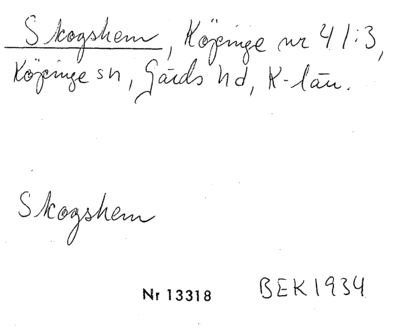 Skogshem, Köpinge nr 41:3,
Köpinge sn, Gärds hd, K-län.
Skogshem
Nr 13318 BEK 1934